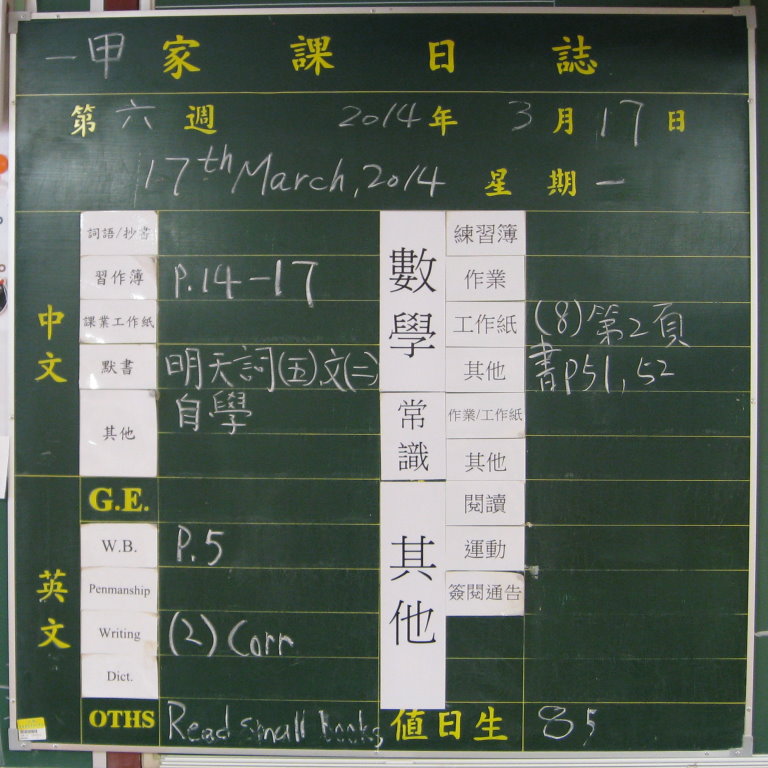 一甲 家課日誌
第六週 2014年3月17日
17th March, 2014 星期一
中文
詞語/抄書
習作簿 P.14-17
課業工作紙
默書 明天詞(五)文(二)
其他 自學
英文
G.E.
W.B. P.5
Penmanship
Writing (2) Corr
Dict.
OTHS Read small books
數學
練習簿
作業
工作紙 (8)第2頁
其他 書P51,52
常識
作業/工作紙
其他
其他
閱讀
運動
簽閱通告
值日生 8 5